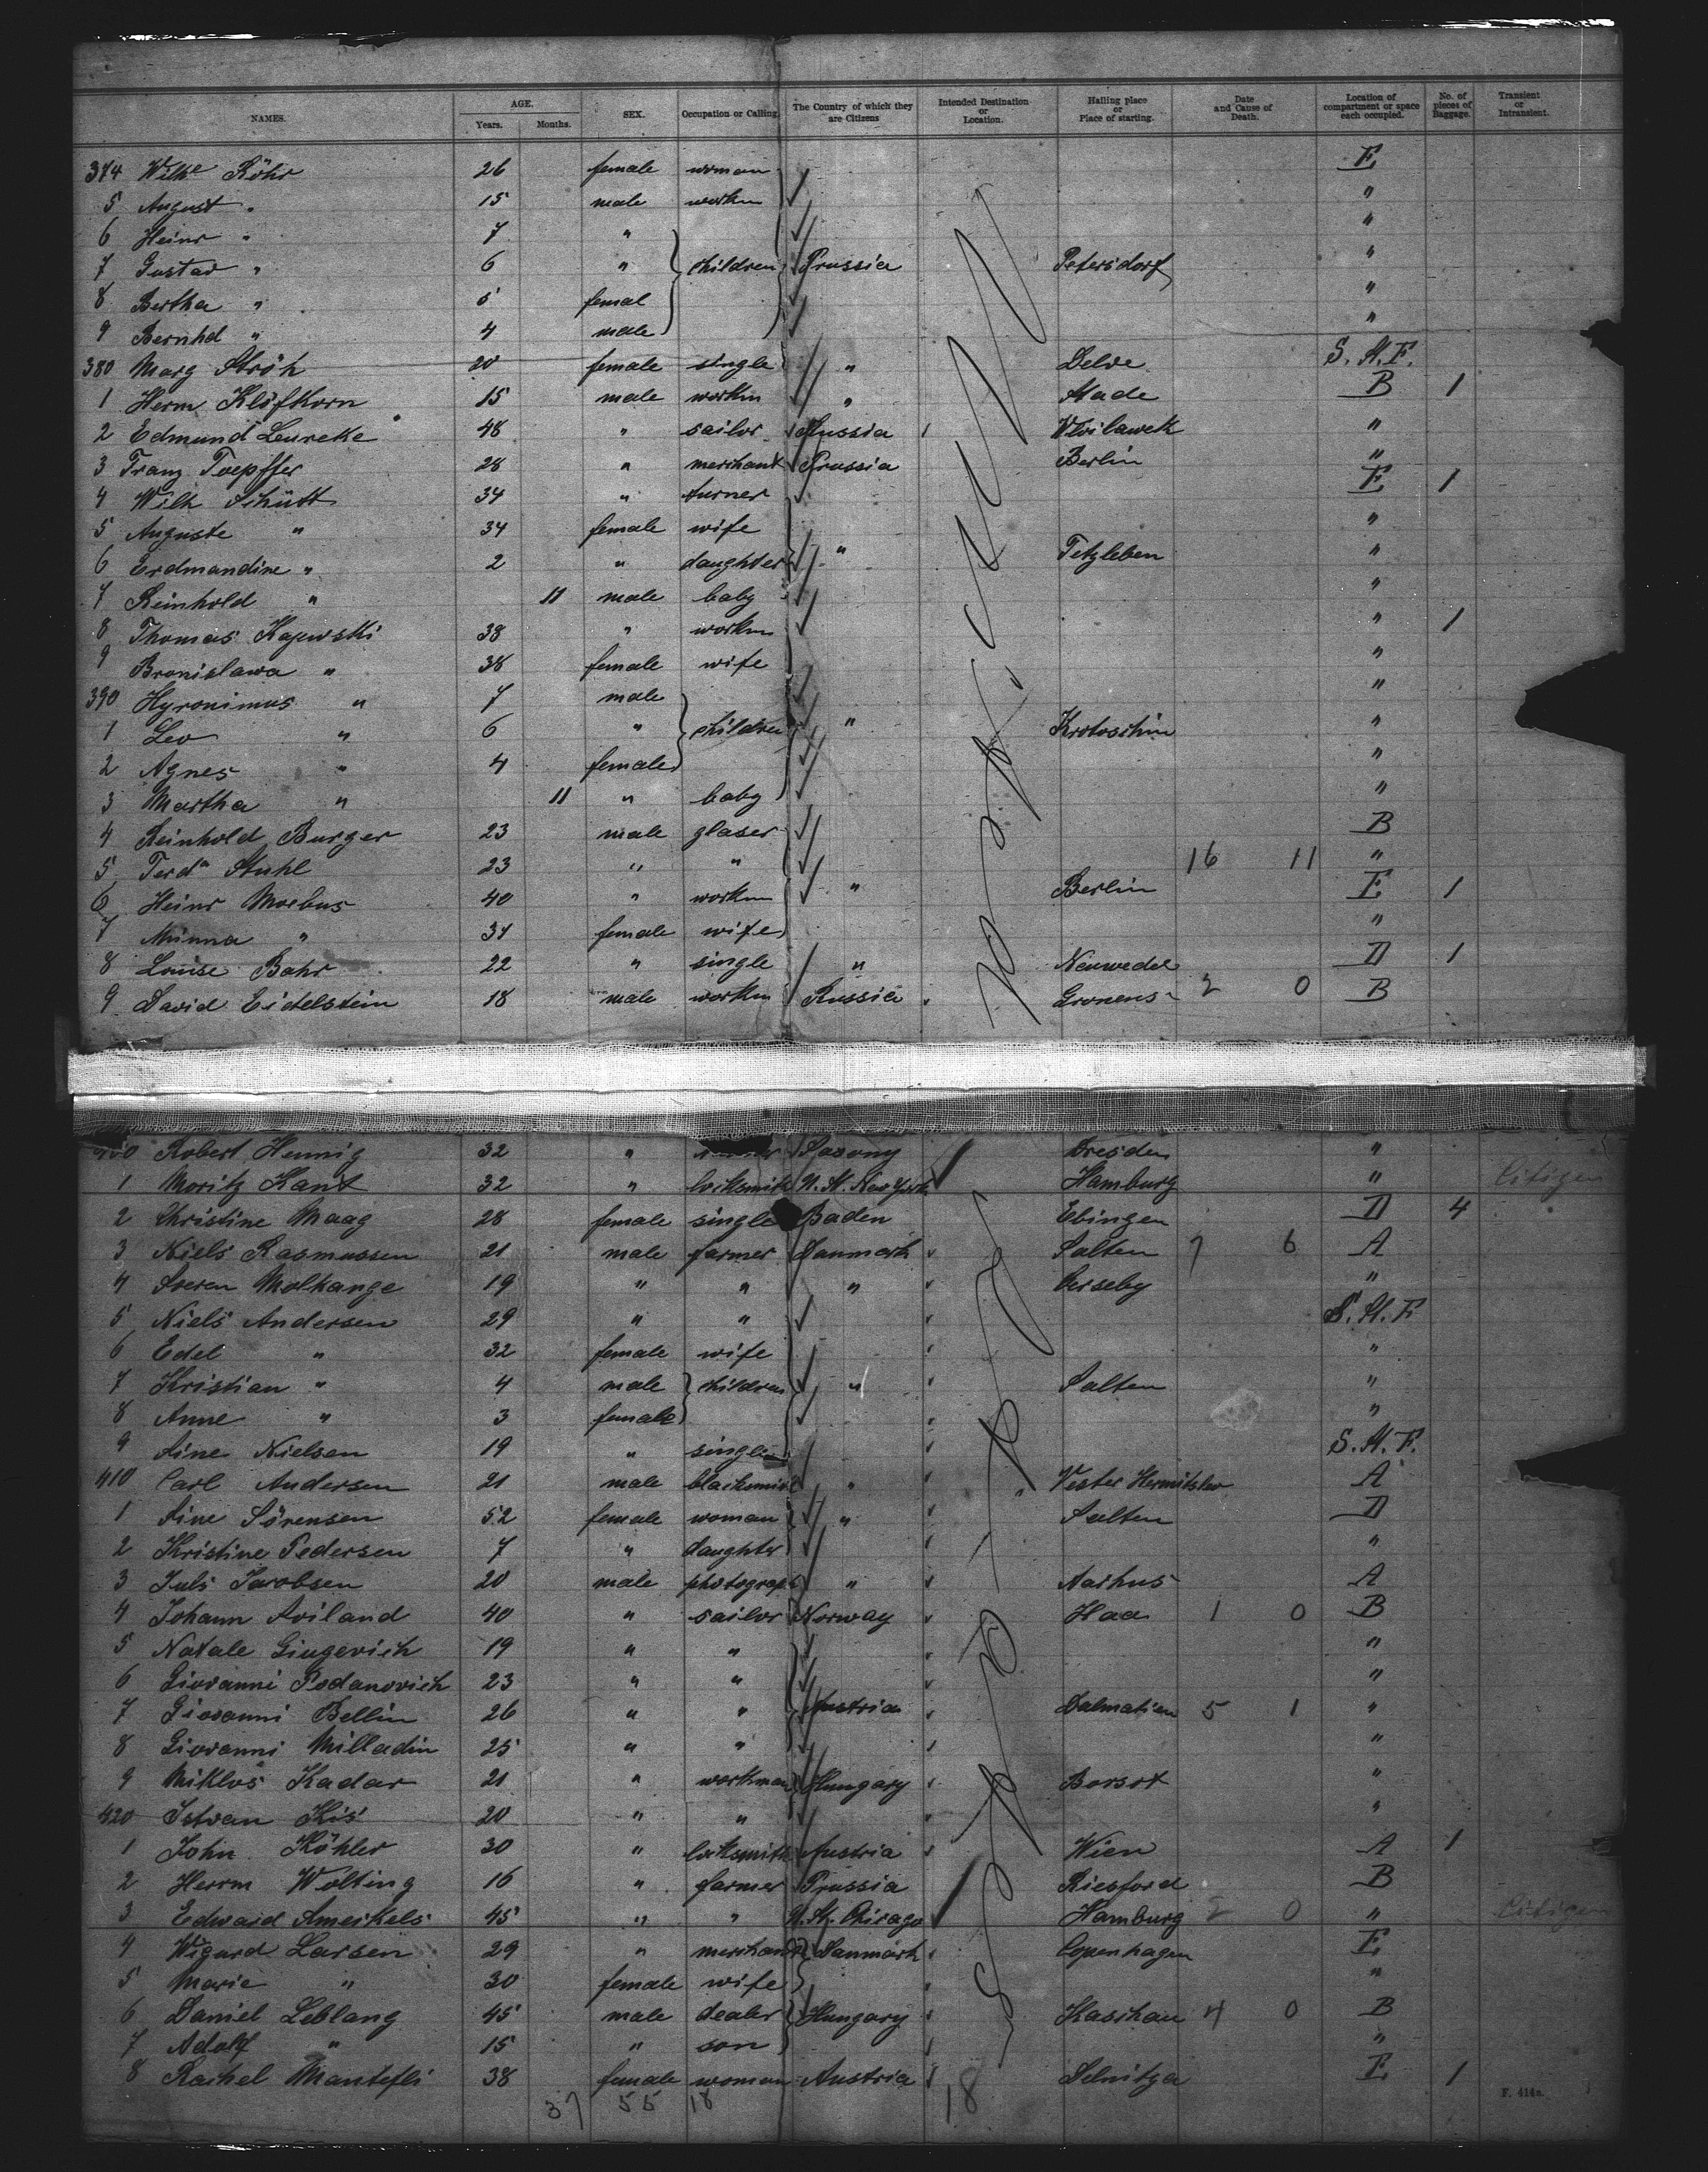 NAMES. AGE. Years. Months. SEX. Occupation or Calling. The Country of which they are Citizens Intended Destination or Location. Hailing place or Place of starting. Date and Cause of Death. Location of compartment or space each occupied. No. of pieces of Baggage. Transient or Intransient.
374 Wilhe Röhr 26 female woman E
5 August " 15 male workm "
6 Heinr " 7 " "
7 Gustav " 6 " children Prussia Petersdorf "
8 Bertha " 5 femal "
9 Bernhd " 4 male "
380 Marg Ströh 20 female single " Delve S. St. F.
1 Herm Klöfkorn 15 male workm " Stade B 1
2 Edmund Leureke 48 " sailor Russia Wloilawek "
3 Franz Toepffer 28 " merchant Prussia Berlin "
4 Wilh Schütt 34 " turner E 1
5 Auguste " 34 female wife "
6 Erdmandine " 2 " daughter " Tetzleben "
7 Reinhold " 11 male baby "
8 Thomas Kajewski 38 " workm " 1
9 Bronislawa " 38 female wife "
390 Hyronimus " 7 male "
1 Leo " 6 " children " Krotoschin "
2 Agnes " 4 female "
3 Martha " 11 " baby "
4 Reinhold Burger 23 male glaser B
5 Ferdn Stuhl 23 " " 16 11 "
6 Heinr Moebus 40 " workm " Berlin E 1
7 Minna " 34 female wife "
8 Louise Bahr 22 " single " Neuwedel D 1
9 David Eidelstein 18 male workm Russia Gronens 2 0 B
New York
400 Robert Hennig 32 " Saxony Dresden "
1 Moritz Kant 32 " locksmith U. St. New York Hamburg " Citizen
2 Christine Maag 28 female single Baden Ebingen D 4
3 Niels Rasmussen 21 male farmer Danmark Salten 7 6 A
4 Soeren Molhange 19 " " " Aerseby "
5 Niels Andersen 29 " " S. St. F
6 Edel " 32 female wife "
7 Kristian " 4 male children " Salten "
8 Anne " 3 female "
9 Sine Nielsen 19 " single S. St. F.
410 Carl Andersen 21 male blacksmith " Vester Hermitslev A
1 Sine Sörensen 52 female woman " Salten D
2 Kristine Pedersen 7 " daughter "
3 Juls Jacobsen 20 male photograph " Aarhus A
4 Johann Aviland 40 " sailor Norway Haa 1 0 B
5 Natale Giugevich 19 " " "
6 Giovanni Podanovich 23 " " "
7 Giovanni Bellin 26 " " Austria Dalmatien 5 1 "
8 Giovanni Milladin 25 " " "
9 Miklos Kadar 21 " workman Hungary Borsot "
420 Istvan Kis 20 " " "
1 John Köhler 30 " locksmith Austria Wien A 1
2 Herrm Wolting 16 " farmer Prussia Riesford B
3 Edward Ameskels 45 " " U. St. Chicago Hamburg 2 0 " Citizen
4 Wigard Larsen 29 " merchant Danmark Copenhagen E
5 Marie " 30 female wife "
6 Daniel Leblang 45 male dealer Hungary Kaschau 4 0 B
7 Adolf " 15 " son "
8 Rachel Mantefli 38 female woman Austria Selnitza E 1
37 55 18 18
F. 414a.